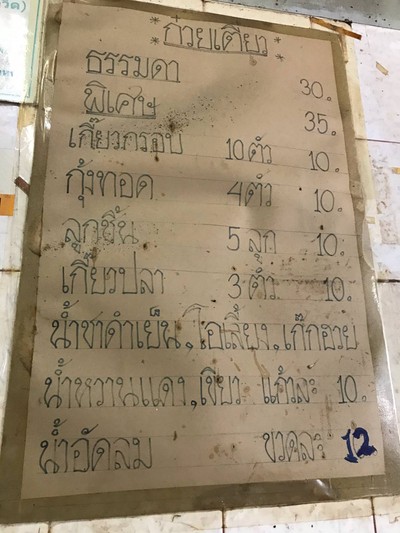 * ก๋วยเตี๋ยว *
ธรรมดา 30.
พิเศษ 35.
เกี๊ยวกรอบ 10 ตัว 10.
กุ้งทอด 4 ตัว 10.
ลูกชิ้น 5 ลูก 10.
เกี๊ยวปลา 3 ตัว 10.
น้ำชาดำเย็น, โอเลี้ยง, เก๊กฮวย
น้ำหวานแดง, เขียว แก้วละ 10.
น้ำอัดลม ขวดละ 12